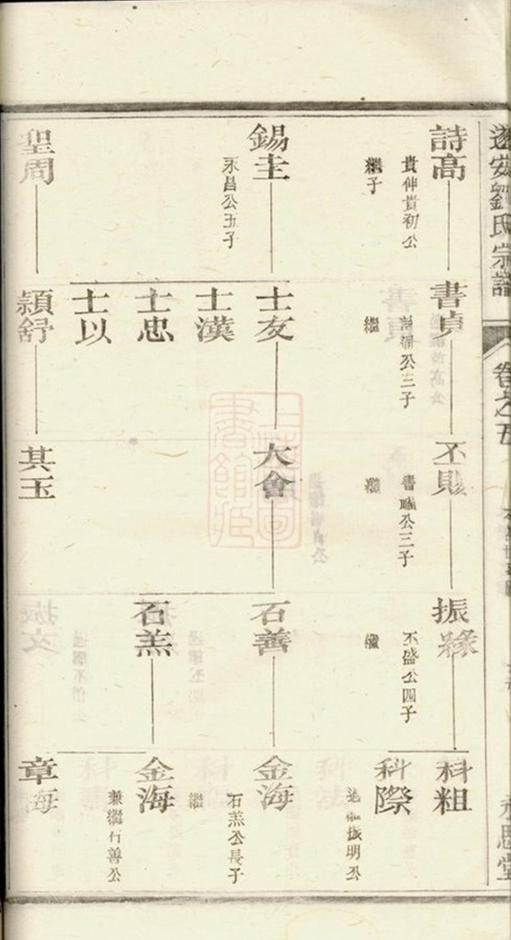 遂安劉氏宗譜
卷之五
永思堂
詩高
貴伸貴初公
繼子
書貞
公三子
繼
丕賜
公三子
繼
振緣
丕盛公四子
繼
科粗
科際
振明公
錫圭
永昌公五子
士友
士漢
士忠
士以
大會
石善
石羔
金海
石羔公長子
繼
金海
兼繼石善公
章海
聖周
穎舒
其玉